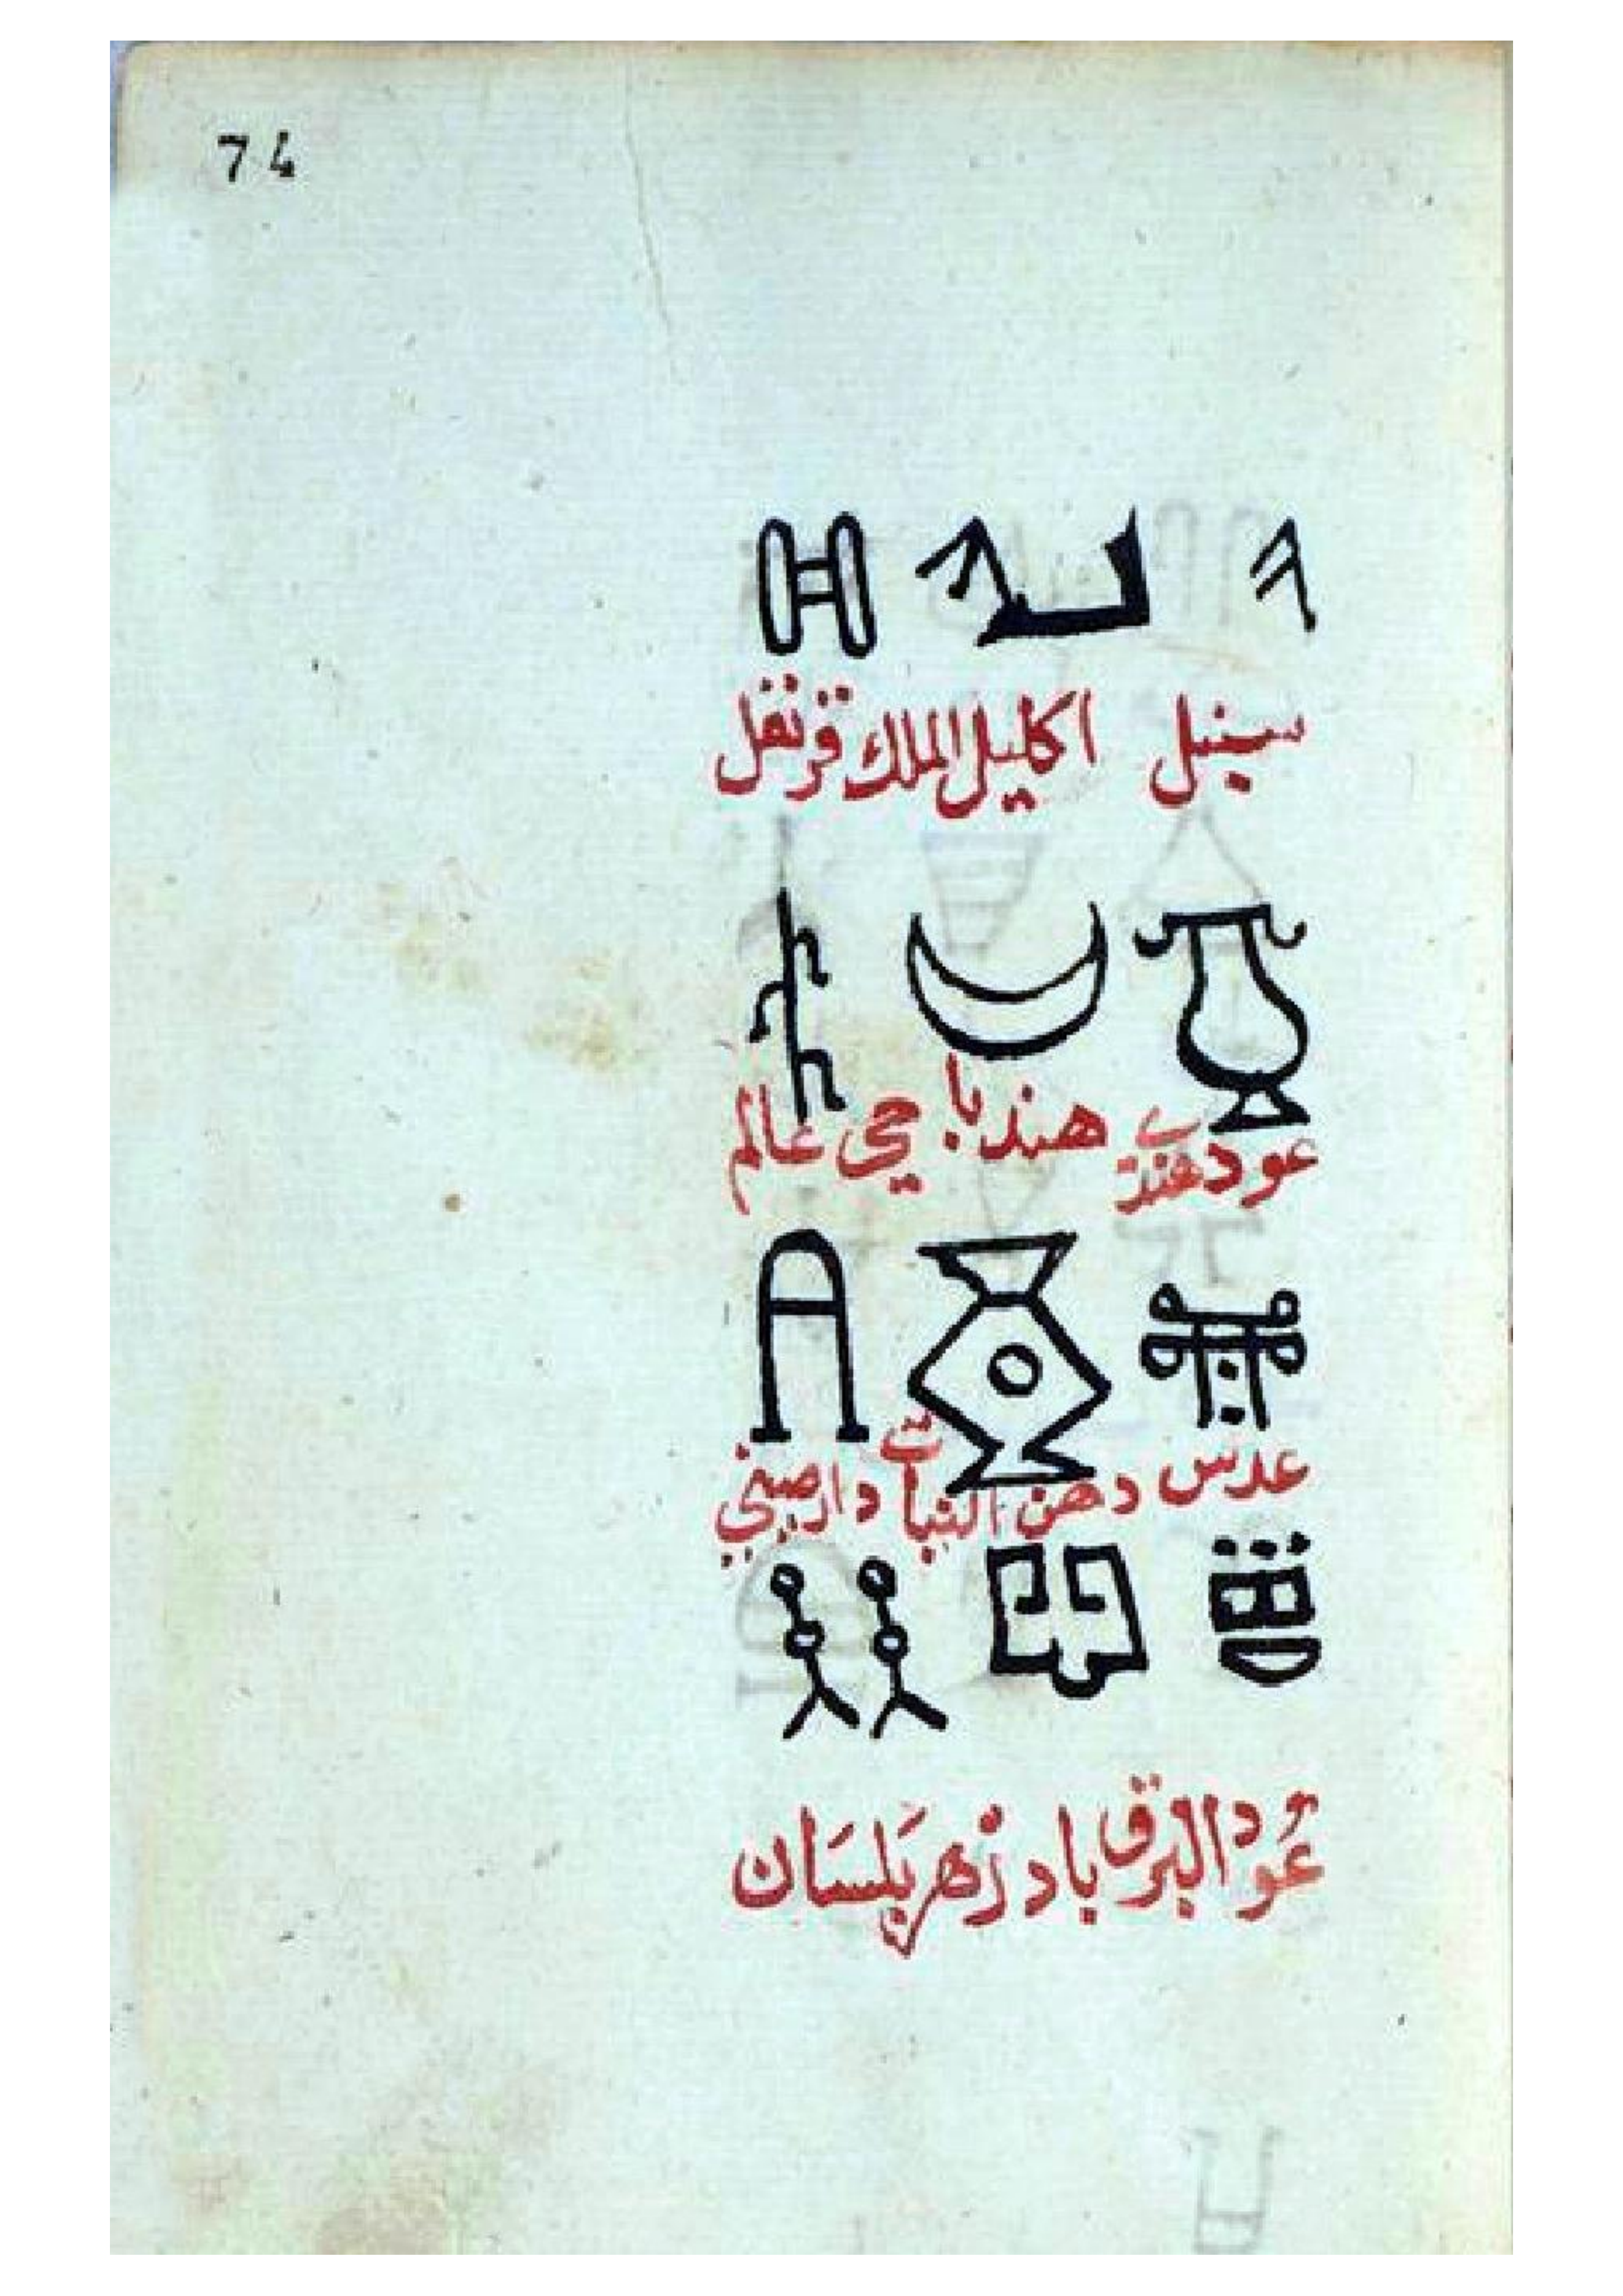 74
سنبل اكليل الملك قرنفل
عود هندي هندبا حي عالم
عدس دهن النبات دارصيني
عُود البرق باد زهر بَلسَان